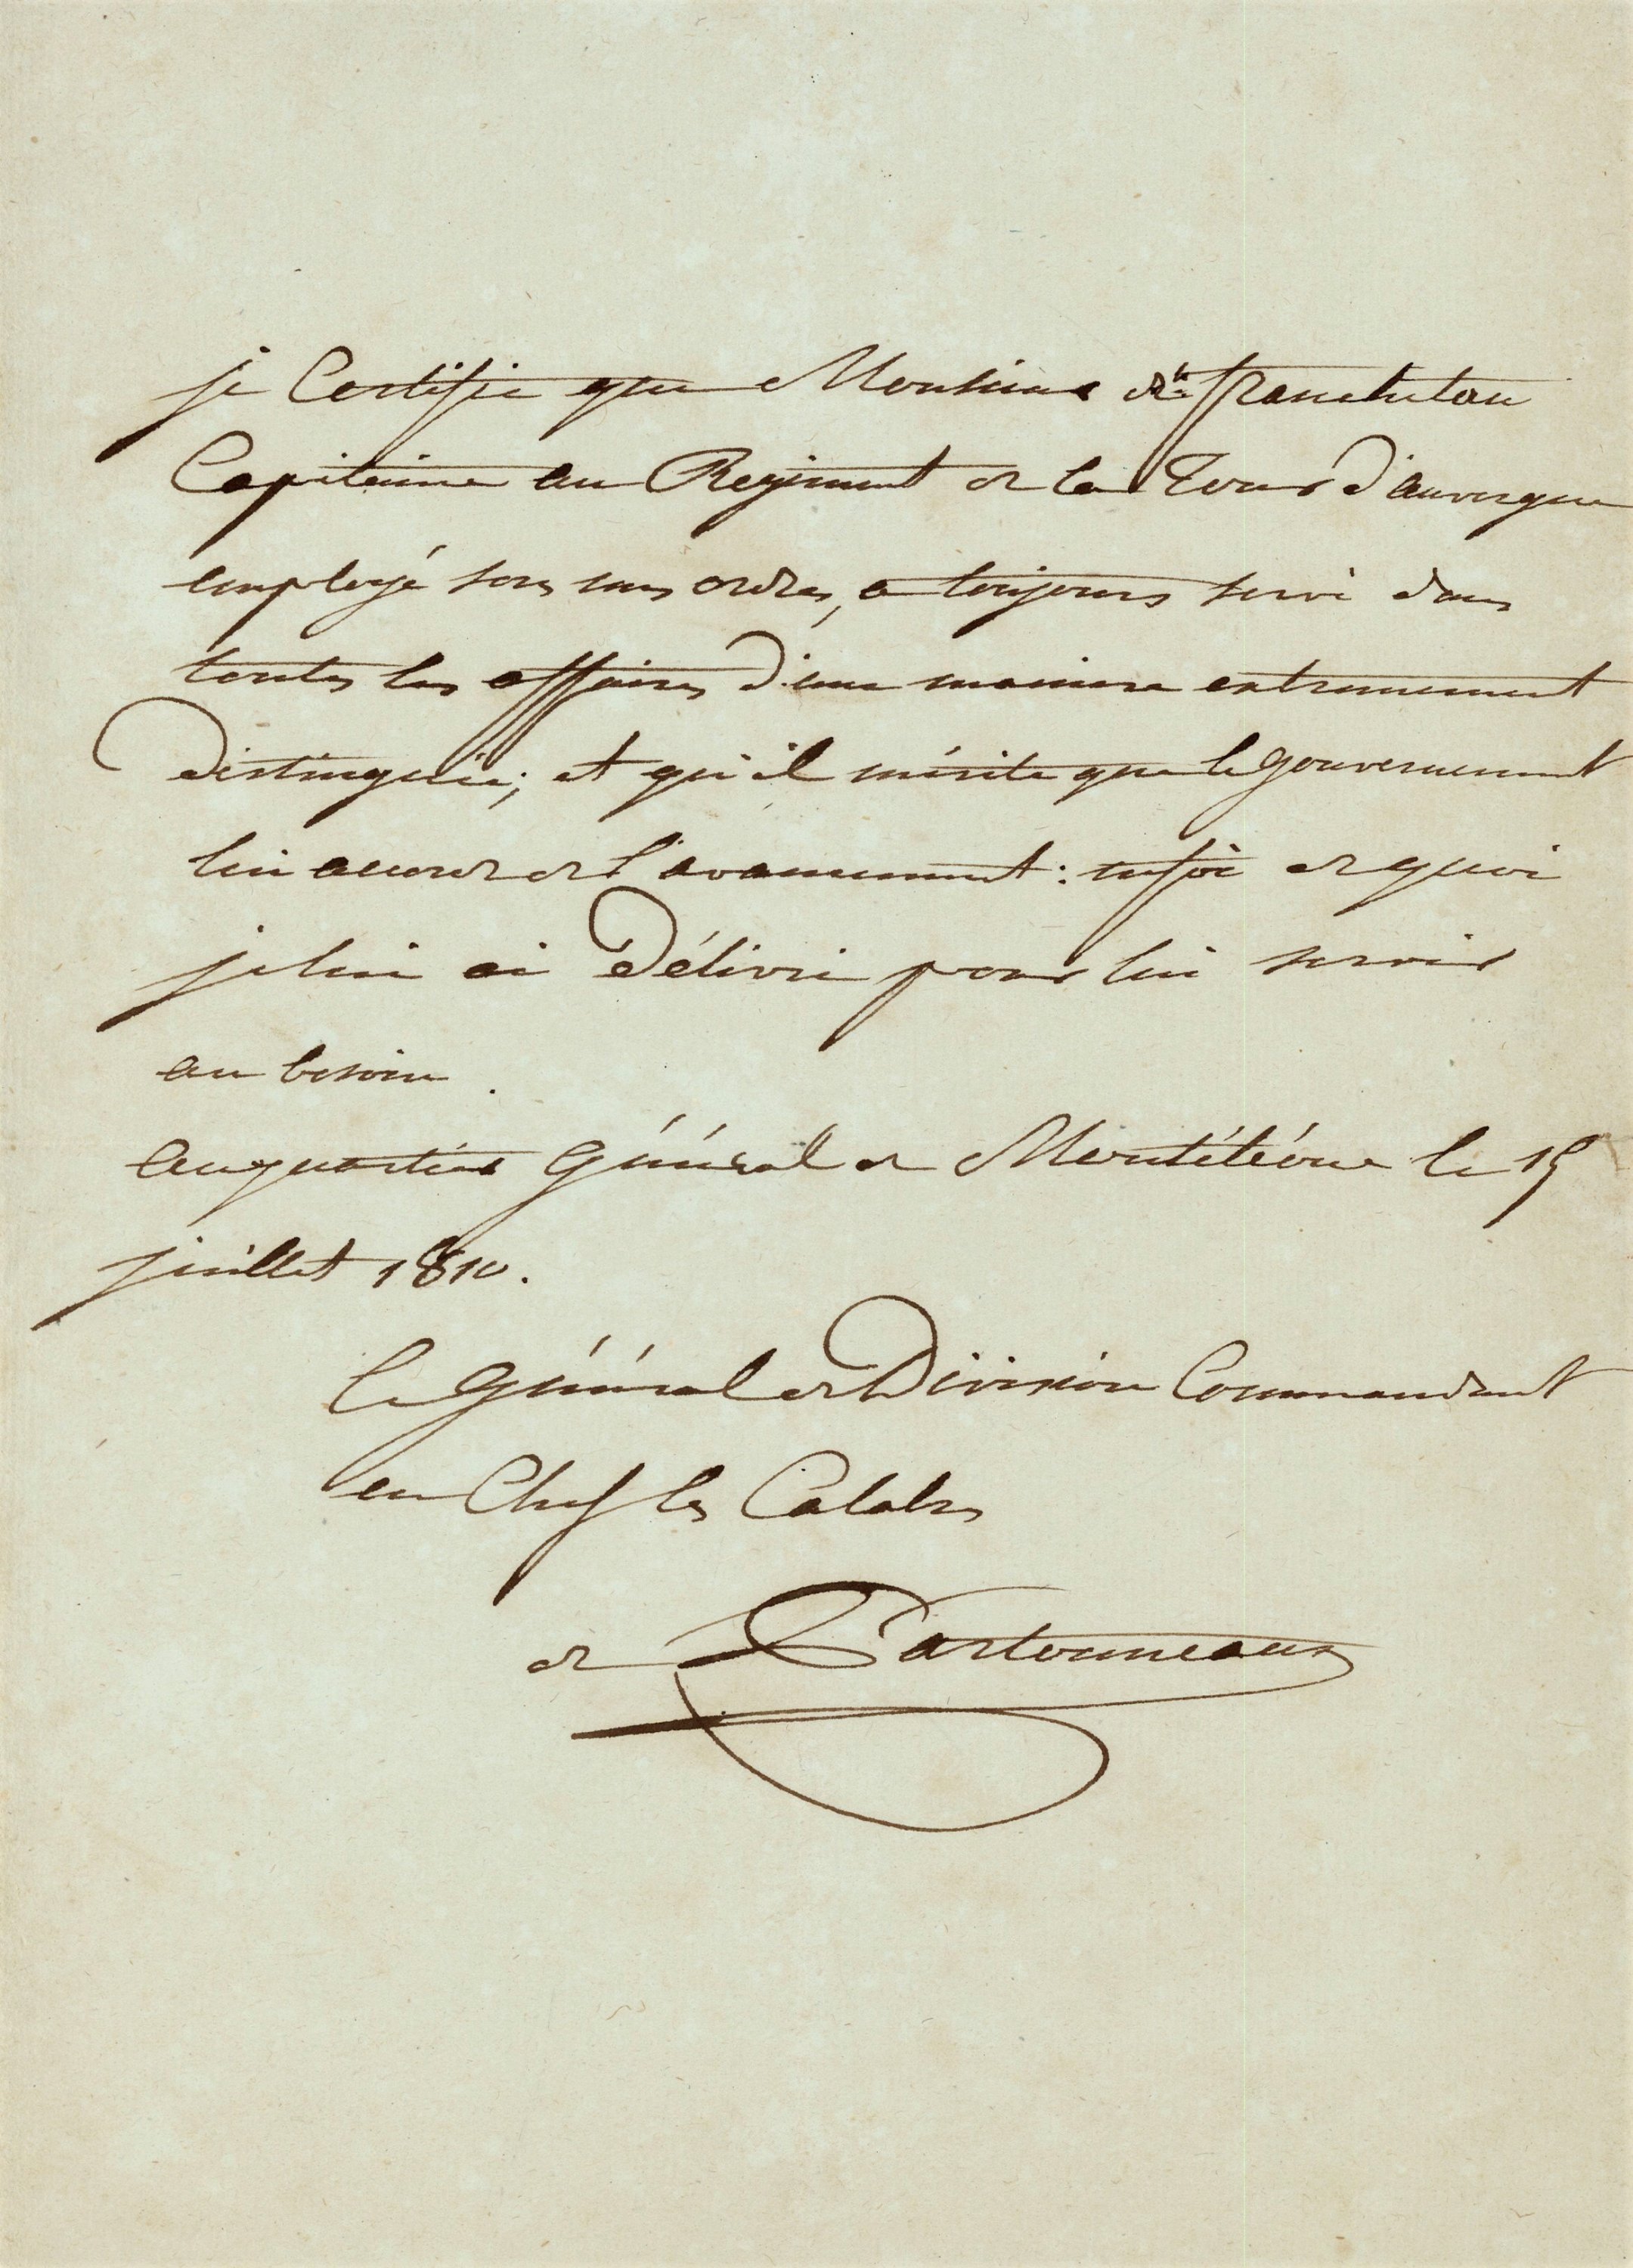 je Certifie que Monsieur de francheteau
Capitaine au Regiment de la Tour d'auvergne
employé sous mes ordres, a toujours servi dans
toutes les affaires d'une maniere extremement
distinguée; et qu'il mérite que le gouvernement
lui accorde de l'avancement: enfoi de quoi
je lui ai délivré pour lui servir
au besoin.
au quartier Général de Monteléone le 15
juillet 1810.
le général de Division Commandant
en Chef les Calabres
de Partouneaux